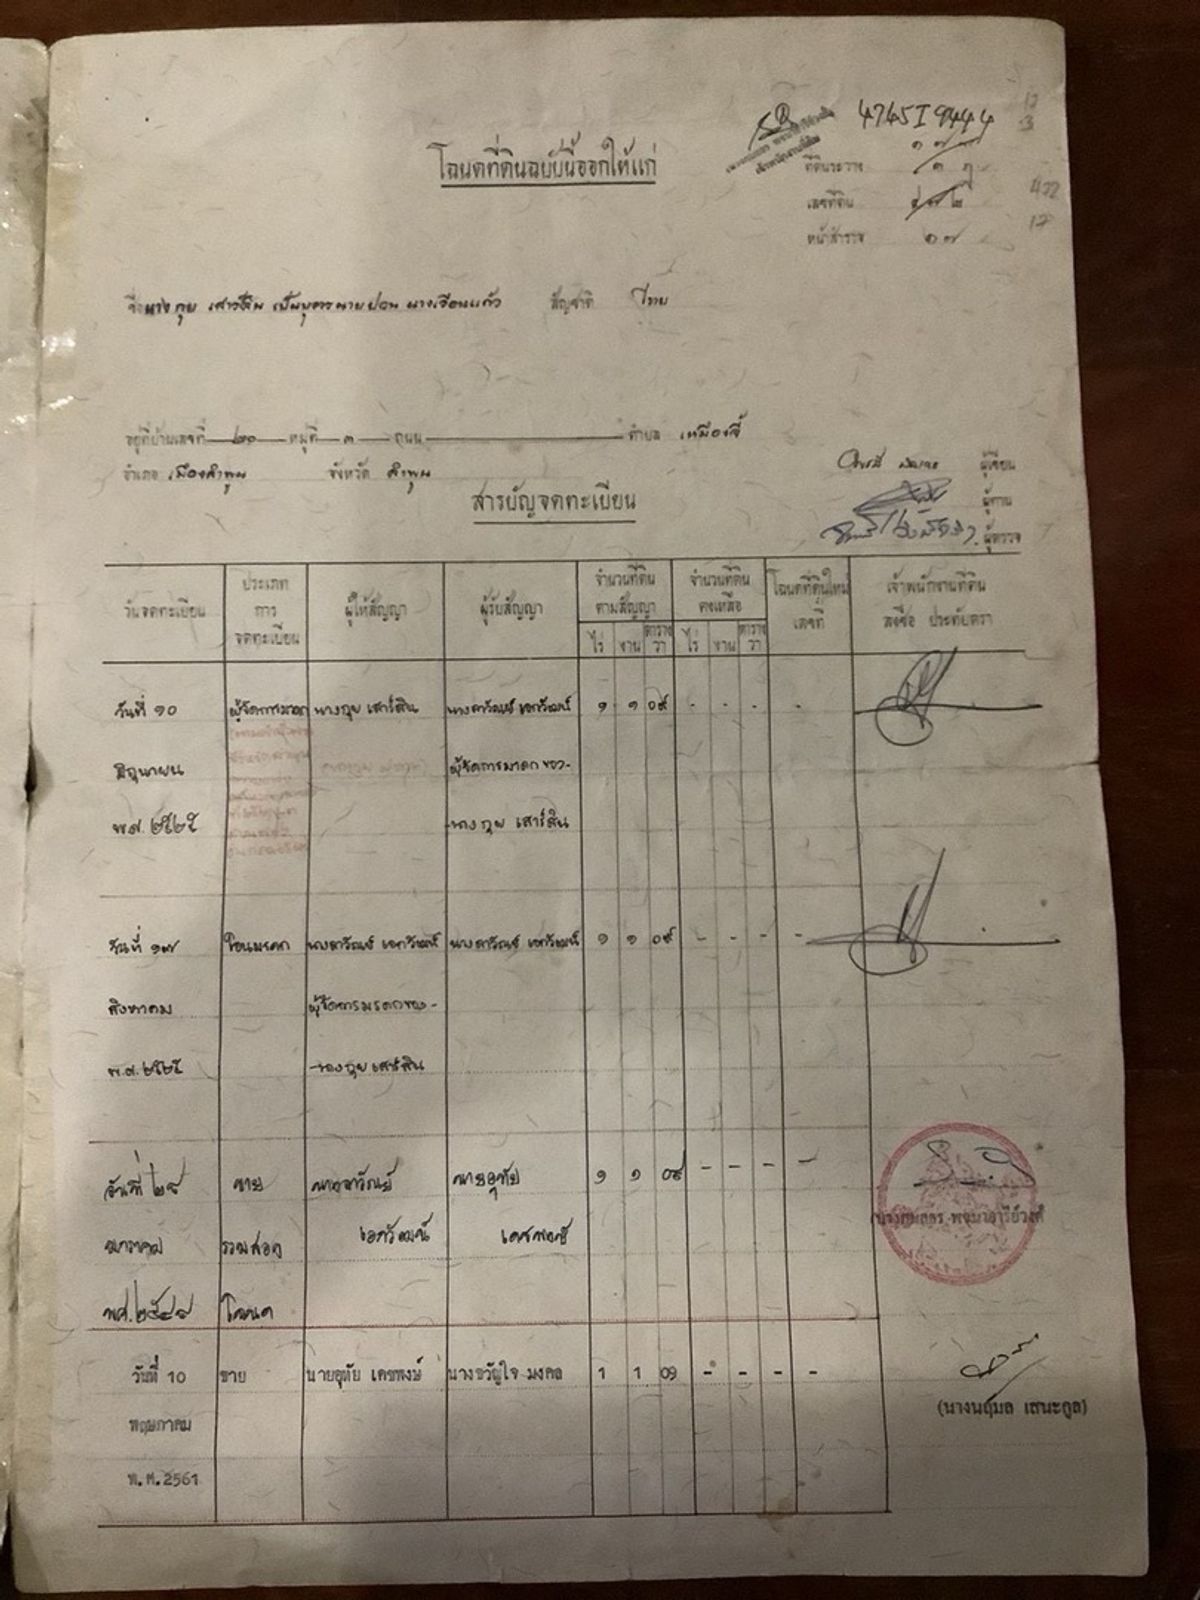 4745I9444
โฉนดที่ดินฉบับนี้ออกให้แก่
ที่ดินระวาง
เลขที่ดิน ๔๗๒
หน้าสำรวจ ๑๗
432
17
ชื่อ นาง กุย เสาร์สิน เป็นบุตร นาย ปวน นาง เขียนแก้ว สัญชาติ ไทย
อยู่ที่บ้านเลขที่ ๒๐ หมู่ที่ ๓ ถนน ตำบล เหมืองจี้
อำเภอ เมืองลำพูน จังหวัด ลำพูน
ผู้เขียน
ผู้ทาน
ผู้ตรวจ
สารบัญจดทะเบียน
วันจดทะเบียน ประเภทการจดทะเบียน ผู้ให้สัญญา ผู้รับสัญญา จำนวนที่ดินตามสัญญา จำนวนที่ดินคงเหลือ โฉนดที่ดินใหม่เลขที่ เจ้าพนักงานที่ดิน ลงชื่อ ประทับตรา
ไร่ งาน ตารางวา ไร่ งาน ตารางวา
วันที่ ๑๐ ผู้จัดการมรดก นางกุย เสาร์สิน นางดาวัณย์ เอกวัฒน์ ๑ ๑ ๐๙ - - - -
มิถุนายน ผู้จัดการมรดกของ-
พ.ศ. ๒๕๒๕ -นางกุย เสาร์สิน
วันที่ ๑๗ โอนมรดก นางดาวัณย์ เอกวัฒน์ นางดาวัณย์ เอกวัฒน์ ๑ ๑ ๐๙ - - - -
สิงหาคม ผู้จัดการมรดกของ-
พ.ศ. ๒๕๒๕ -นางกุย เสาร์สิน
วันที่ ๒๘ ขาย นางดาวัณย์ นายอุทัย ๑ ๑ ๐๙ - - - -
รวมสอง เอกวัฒน์ เดชพงษ์
พ.ศ. ๒๕๔๙ โฉนด
วันที่ 10 ขาย นายอุทัย เดชพงษ์ นางขวัญใจ มงคล 1 1 09 - - - -
(นางนฤมล เสนะกูล)
พฤษภาคม
พ.ศ. 2561